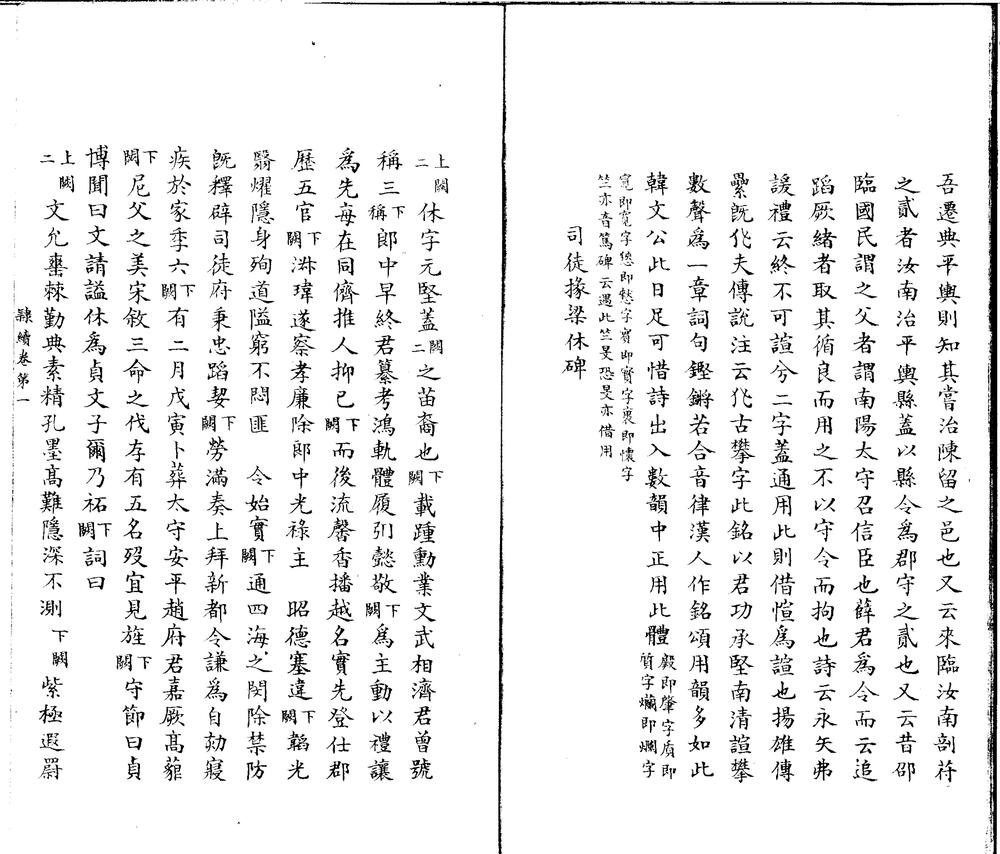 吾遷典平輿則知其嘗治陳留之邑也又云來臨汝南剖符
之貳者汝南治平輿縣蓋以縣令爲郡守之貳也又云昔邵
臨國民謂之父者謂南陽太守召信臣也薛君爲令而云追
蹈厥緒者取其循良而用之不以守令而拘也詩云永矢弗
諼禮云終不可諠兮二字蓋通用此則借愃爲諠也揚雄傳
纍既𠬜夫傅說注云𠬜古攀字此銘以君功承堅南清諠攀
數聲爲一章詞句鏗鏘若合音律漢人作銘頌用韻多如此
韓文公此日足可惜詩出入數韻中正用此體 殷即肇字貭即
質字爤即爛字
寬即寬字㥦即愁字賔即賓字褱即懷字
竺亦音篤碑云遇此竺旻恐旻亦借用
司徒掾梁休碑
上闕二休字元堅蓋闕二之苗裔也下闕載踵勳業文武相濟君曾號
稱三下稱郎中早終君纂考鴻軌體履弘懿敬下闕爲主動以禮讓
爲先每在同儕推人抑已下闕而後流馨香播越名實先登仕郡
歷五官下闕滋瑋遂察孝廉除郎中光祿主 昭德塞違下闕韜光
翳燿隱身殉道隘窮不悶匪 令始實下闕通四海之閔除禁防
旣釋辟司徒府秉忠蹈絜下闕勞滿奏上拜新都令謙爲自劾寢
疾於家秊六下闕有二月戊寅卜葬太守安平趙府君嘉厥髙蕤
下闕尼父之美宋敘三命之代存有五名歿宜見旌下闕守節曰貞
博聞曰文請謚休爲貞文子爾乃祏下闕詞曰
上闕二文允棗棘勤典素精孔墨髙難隱深不測下闕紫極遐罻
隸續卷第一